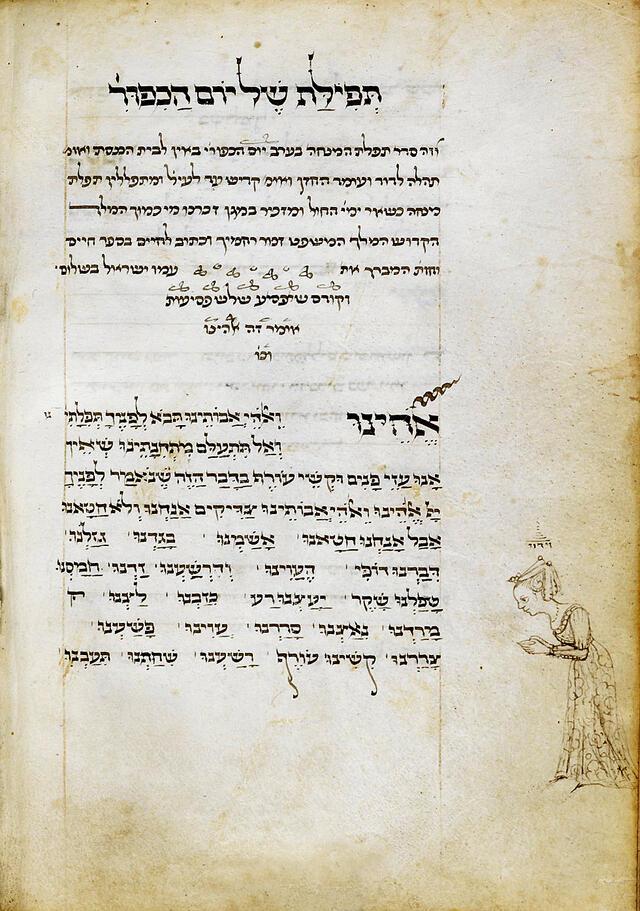 תְּפִילַת שֶׁל יוֹם הַכִּפּוּר'
וזה סדר תפלת המנחה בערב יום הכפורי' באין לבית הכנסת ואומ'
תהלה לדוד ועומד החזן ואומ' קדיש עד לעיל' ומתפללין תפלת
מנחה כשאר ימי החול ומזכיר במגן זכרנו מי כמוך המלך
הקדוש המלך המשפט זכור רחמיך וכתוב לחיים בספר חיים
וחות' המברך את עמו ישראל בשלום
וקודם שיפסיע שלש פסיעות
אומר זה אלהינו
וכו'
אֱלֹהֵינוּ וֵאלֹהֵי אֲבוֹתֵינוּ תָּבֹא לְפָנֶיךָ תְּפִלָּתֵינוּ
וְאַל תִּתְעַלַּם מִתְּחִנָּתֵינוּ שֶׁאֵין
אָנוּ עַזֵּי פָנִים וּקְשֵׁי עוֹרֶף בַּדָּבָר הַזֶּה שֶׁנֹּאמַר לְפָנֶיךָ
יְיָ אֱלֹהֵינוּ וֵאלֹהֵי אֲבוֹתֵינוּ צַדִּיקִים אֲנַחְנוּ וְלֹא חָטָאנוּ
אֲבָל אֲנַחְנוּ חָטָאנוּ' אָשַׁמְנוּ' בָּגַדְנוּ' גָּזַלְנוּ'
דִּבַּרְנוּ דּוֹפִי' הֶעֱוִינוּ' וְהִרְשַׁעְנוּ' זַדְנוּ' חָמַסְנוּ'
טָפַלְנוּ שֶׁקֶר' יָעַצְנוּ רַע' כִּזַּבְנוּ' לַצְנוּ'
מָרַדְנוּ' נִאַצְנוּ' סָרַרְנוּ' עָוִינוּ' פָּשַׁעְנוּ'
צָרַרְנוּ' קִשִּׁינוּ עוֹרֶף' רָשַׁעְנוּ' שִׁחַתְנוּ' תִּעַבְנוּ
וידוי